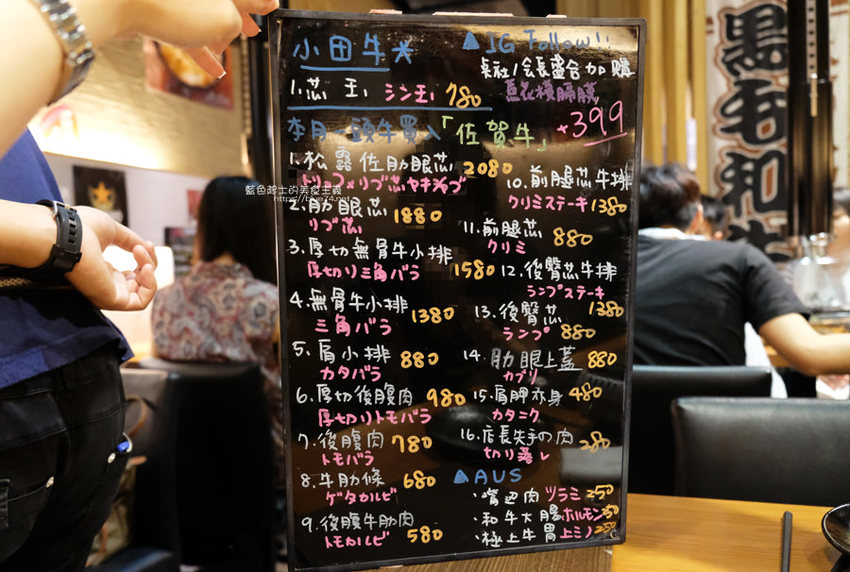 小田牛
1.芯玉 シン玉 780
本月一頭牛買入「佐賀牛」
▲IG Follow!!
桌社/会長盛合加購
+399
1.松露佐肋眼芯 2080
トリュフ×リブ芯ヤキシャブ
2.肋眼芯 1880
リブ芯
3.厚切無骨牛小排
厚切り三角バラ 1580
4.無骨牛小排 1380
三角バラ
5.肩小排 880
カタバラ
6.厚切後腹肉 980
厚切りトモバラ
7.後腹肉 780
トモバラ
8.牛肋條 680
ゲタカルビ
9.後腹牛肋肉
トモカルビ 580
10.前腿芯牛排
クリミステーキ 1380
11.前腿芯
クリミ 880
12.後臀芯牛排
ランプステーキ 1380
13.後臀芯
ランプ 880
14.肋眼上蓋 880
カブリ
15.肩胛赤身 480
カタニク
16.店長失手の肉
切り落し 280
▲AUS
・嘴边肉 ツラミ 250
・和牛大腸 ホルモン
・極上牛胃 上ミノ
藍色起士的美食主義
https://blue74.net
黒毛和牛